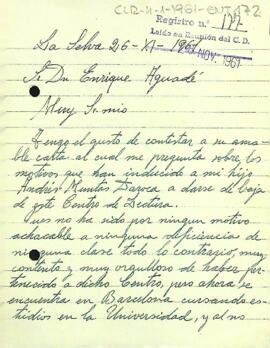 CLR-4-1-1961-ENT.172
Registro n.º 177
Leído en Reunión del C.D.
NOV. 1961
La Selva 26-XI-1961
Sr Dn Enrique Aguadé
Muy Sr mio
Tengo el gusto de contestar a su ama-
ble carta al cual me pregunta sobre los
motivos que han inducido a mi hijo
Andrés Muntas Daroca a darse de baja
de este Centro de Lectura.
ues no ha sido por ningun motivo
achacable a ninguna deficiencia de
ninguna clase todo lo contrario, muy
contento y muy orgulloso de haber per-
tenecido a dicho Centro, pero ahora se
encuentra en Barcelona cursando es-
tudios en la Universidad, y al no